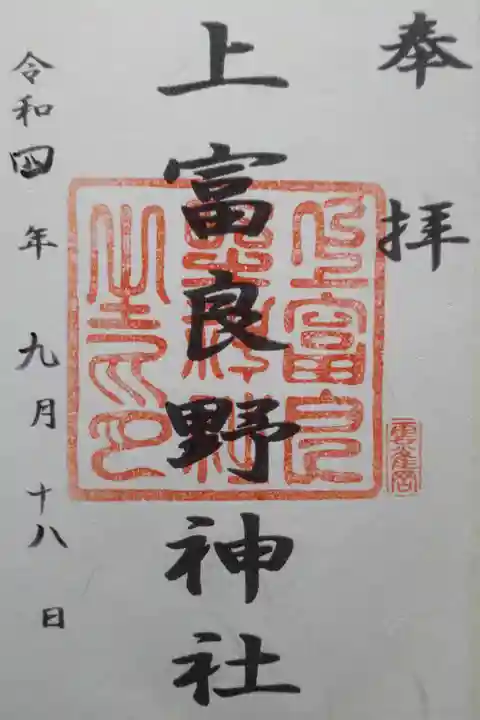 奉拝
雲雀宮
上富良野神社
上富良
野神社
之印
令和四年九月十八日